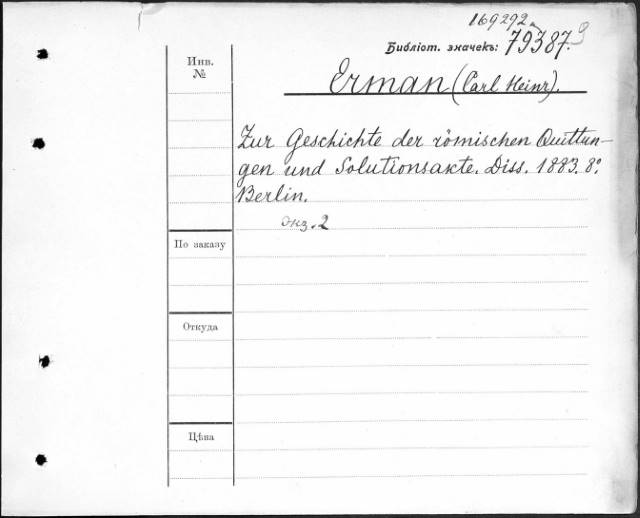 169292
Библіот. значекъ: 79387.
Инв.
№
Erman (Carl Heinr).
Zur Geschichte der römischen Quittun-
gen und Solutionsakte. Diss. 1883. 8º.
Berlin.
экз. 2
По заказу
Откуда
Цѣна